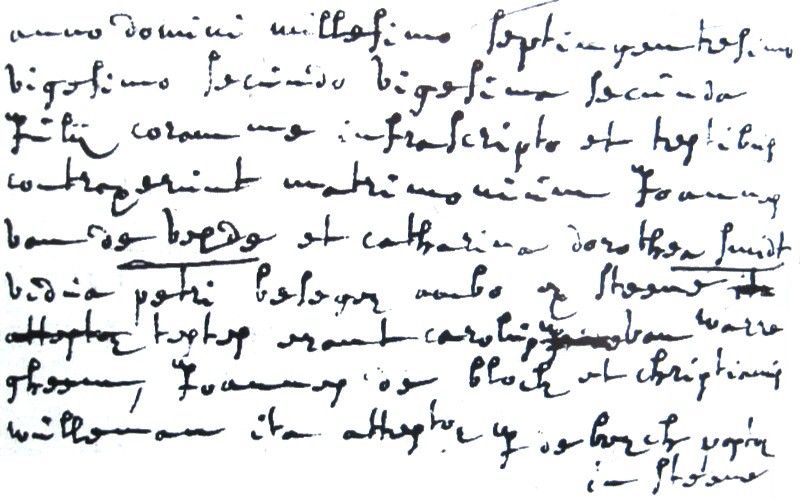 anno domini millesimo septingentesimo
vigesimo secundo vigesima secunda
Julij coram me infrascripto et testibus
contraxerunt matrimonium Joannes
van de velde et catharina dorothea smidt
vidua petri ex steene
testes erant carolus van warre
gheem, Joannes de block et christianus
wulleman ita attestor de pastor
in steene